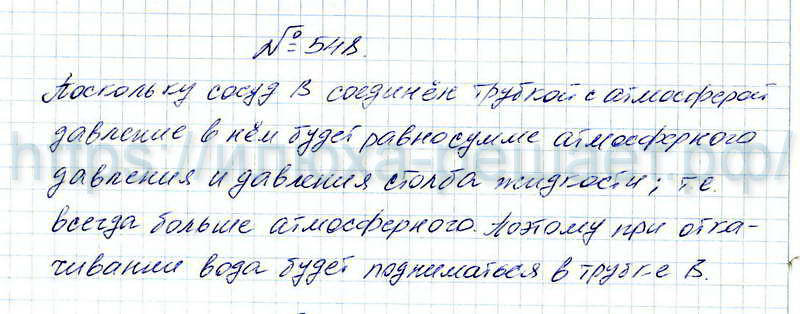 № 548.
Поскольку сосуд В соединён трубкой с атмосферой
давление в нём будет равно сумме атмосферного
давления и давления столба жидкости; т.е.
всегда больше атмосферного. Поэтому при отка-
чивании вода будет подниматься в трубке В.